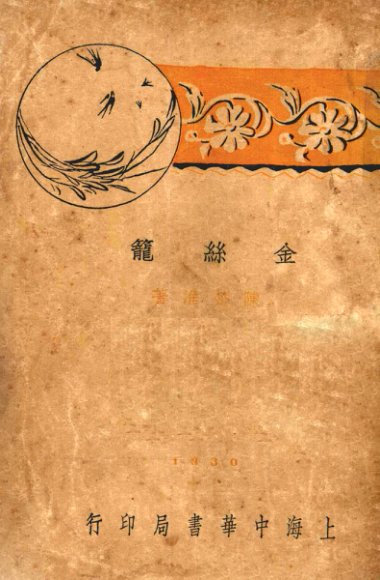 金絲籠
陳楚淮著
1930
上海中華書局印行